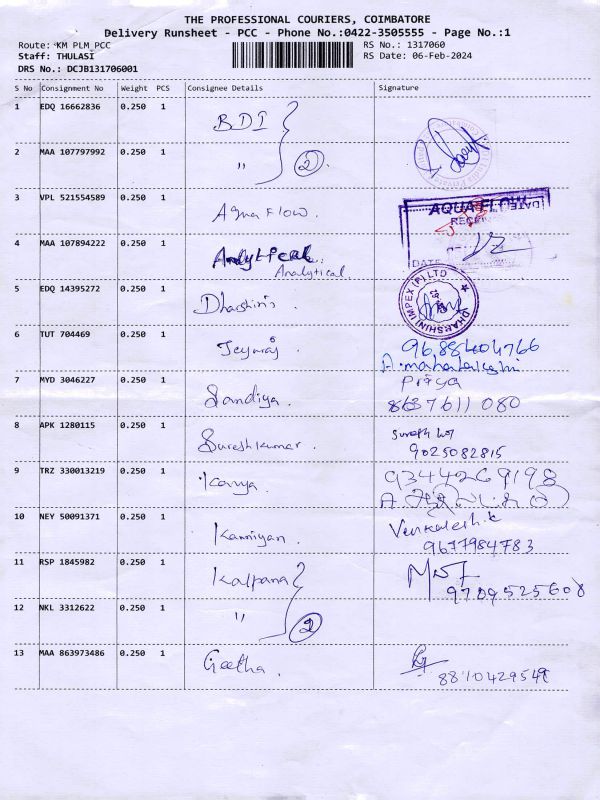 THE PROFESSIONAL COURIERS, COIMBATORE
Delivery Runsheet - PCC - Phone No.:0422-3505555 - Page No.:1
Route: KM PLM_PCC
RS No.: 1317060
Staff: THULASI
RS Date: 06-Feb-2024
DRS No.: DCJB131706001
S No Consignment No Weight PCS Consignee Details Signature
1 EDQ 16662836 0.250 1 BDI
2 MAA 107797992 0.250 1 " 2
3 VPL 521554589 0.250 1 Aqua Flow. AQUA FLOW
RECEIVED
DATE
4 MAA 107894222 0.250 1 Analytical.
Analytical
5 EDQ 14395272 0.250 1 Dharshini's DHARSHINI IMPEX (P) LTD
6 TUT 704469 0.250 1 Jeyaraj. 9688404766
A. mahalakshmi
7 MYD 3046227 0.250 1 Sandiya. Priya
8637611080
8 APK 1280115 0.250 1 Sureshkumar.
9025082815
9 TRZ 330013219 0.250 1 Kavya. 9344269198
10 NEY 50091371 0.250 1 Kanniyan. Venkatesh.k
9677984783
11 RSP 1845982 0.250 1 Kalpana
9789525608
12 NKL 3312622 0.250 1 " 2
13 MAA 863973486 0.250 1 Geetha.